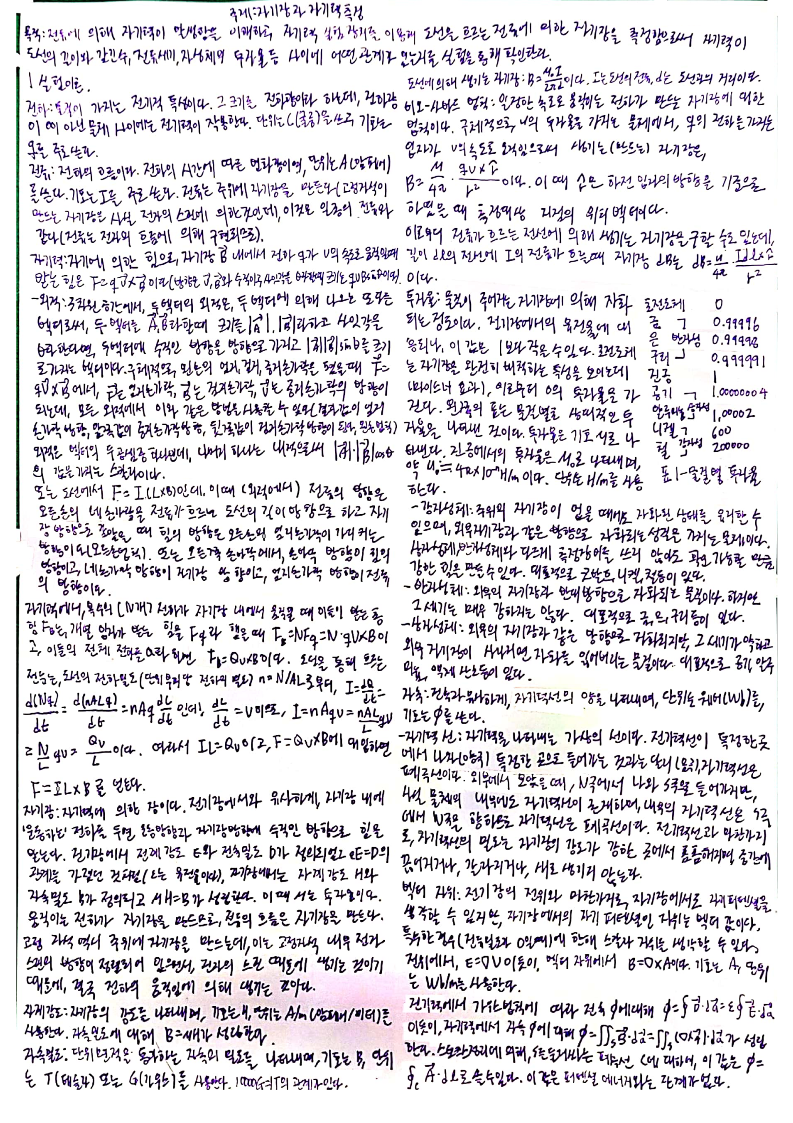 주제: 자기장과 자기력 측정
목적: 전류에 의해 자기력이 발생함을 이해하고, 자기력 실험 장치를 이용해 도선을 흐르는 전류에 의한 자기장을 측정함으로써 자기력이
도선의 길이와 감긴 수, 전류세기, 자성체의 투자율 등 사이에 어떤 관계가 있는지를 실험을 통해 확인한다.
1. 실험이론.
전하: 물질이 가지는 전기적 특성이다. 그 크기를 전하량이라 하는데, 전하량
이 0이 아닌 물체 사이에는 전기력이 작용한다. 단위는 C(쿨롱)을 쓰고 기호는
q를 주로 쓴다.
전류: 전하의 흐름이다. 전하의 시간에 따른 변화량이며, 단위는 A(암페어)
를 쓴다. 기호는 I를 주로 쓴다. 전류는 주위에 자기장을 만든다(고정자석이
만드는 자기장은 사실 전자의 스핀에 의한 것인데, 이것은 일종의 전류와
같다(전류는 전자의 흐름에 의해 구현되므로).
자기력: 자기에 의한 힘으로, 자기장 B 내에서 전하 q가 v의 속도로 움직일 때
받는 힘은 F=qv×B이다
-외적: 3차원 공간에서, 두 벡터의 외적은, 두 벡터에 의해 나오는 또 다른
벡터로써, 두 벡터를 A, B라 할 때 크기를 |A|, |B|라 하고 사잇각을
θ라 한다면, 두 벡터에 수직인 방향을 방향으로 가지고 |A||B|sinθ를 크기
로 가지는 벡터이다. 구체적으로, 왼손의 엄지, 검지, 중지손가락을 폈을 때 F=
qv×B에서, F는 엄지손가락, B는 검지손가락, v는 중지손가락의 방향이
되는데, 모든 외적에서 이와 같은 방법을 사용할 수 있다
외적은 벡터의 두 곱셈 중 하나인데, 나머지 하나는 내적으로써 |A||B|cosθ
의 값을 가지는 스칼라이다.
또는 도선에서 F=I(L×B)인데, 이때 (외적에서) 전류의 방향은
오른손의 네 손가락을 전류가 흐르는 도선의 길이 방향으로 하고 자기
장 방향으로 감았을 때 힘의 방향은 오른손의 엄지손가락이 가리키는
방향이다(오른손법칙). 또는 오른쪽 손바닥에서, 손바닥 방향이 힘의
방향이고, 네 손가락 방향이 자기장 방향이고, 엄지손가락 방향이 전류
의 방향이다.
자기력에서, 복수의 (N개) 전하가 자기장 내에서 움직일 때 이들이 받는 총
힘 F는, 개별 입자가 받는 힘을 Fq라 했을 때 F=NFq=N·qv×B이
고, 이들의 전체 전하를 Q라 하면 F=Qv×B이다. 도선을 통해 흐르는
전류는, 도선의 전하밀도(단위부피당 전하의 밀도) n=N/AL로부터, I=dQ/dt=
d(Nq)/dt = d(nALq)/dt = nAq dL/dt 인데, dL/dt = v이므로, I=nAqv= nAL/L qv
= N/L qv = Qv/L 이다. 따라서 IL=Qv이고, F=Qv×B에 대입하면
F=IL×B를 얻는다.
자기장: 자기력에 의한 장이다. 전기장에서와 유사하게, 자기장 내에
'운동하는' 전하를 두면 운동방향과 자기장방향에 수직인 방향으로 힘을
받는다. 전기장에서 전계 강도 E와 전속밀도 D가 정의되었고 εE=D의
관계를 가졌던 것처럼(ε는 유전율이다), 자기장에서는 자계 강도 H와
자속밀도 B가 정의되고 μH=B가 성립한다. 이때 μ는 투자율이다.
움직이는 전하가 자기장을 만드므로, 전류의 흐름은 자기장을 만든다.
고정 자석 역시 주위에 자기장을 만드는데, 이는 고정자석 내부 전자
스핀의 방향이 정렬되어 있으면서, 전자의 스핀 때문에 생기는 것이기
때문에, 결국 전하의 움직임에 의해 생기는 꼴이다.
자계강도: 자기장의 강도를 나타내며, 기호는 H, 단위는 A/m(암페어/미터)를
사용한다. 자속밀도에 대해 B=μH가 성립한다.
자속밀도: 단위면적을 통과하는 자속의 밀도를 나타내며, 기호는 B, 단위
는 T(테슬라) 또는 G(가우스)를 사용한다. 10000G=1T의 관계를 가진다.
도선에 의해 생기는 자기장: B=μ₀I/2πd이다. I는 도선의 전류, d는 도선과의 거리이다.
비오-사바르 법칙: 일정한 속도로 움직이는 전하가 만드는 자기장에 대한
법칙이다. 구체적으로, μ의 투자율을 가지는 물체에서, q의 전하를 가지는
입자가 v의 속도로 움직임으로써 생기는(만드는) 자기장은,
B= μ/4π · qv×r̂/r² 이다. 이때 r̂은 하전 입자의 방향을 기준으로
하였을 때 측정대상 지점의 위치벡터이다.
이로부터 전류가 흐르는 전선에 의해 생기는 자기장을 구할 수도 있는데,
길이 dl의 전선에 I의 전류가 흐를 때 자기장 dB는 dB= μ/4π · Idl×r̂/r²
이다.
투자율: 물질이 주어지는 자기장에 의해 자화
되는 정도이다. 전기장에서의 유전율에 대
응되나, 이 값은 1보다 작을 수 있다. 초전도체
는 자기장을 완전히 배척하는 특성을 보이는데
(마이스너 효과), 이로부터 0의 투자율을 가
진다. 오른쪽의 표는 물질별로 상대적인 투
자율을 나타낸 것이다. 투자율은 기호 μ로 나
타낸다. 진공에서의 투자율은 μ₀로 나타내며,
약 μ₀=4π×10⁻⁷H/m이다. 단위는 H/m를 사용
한다.
초전도체 0
금 ㄱ 0.99996
은 반자성 0.99998
구리 ㄱ 0.999991
진공 1
공기 ㄱ 1.00000004
알루미늄 상자성 1.00002
니켈 ㄱ 600
철 강자성 200000
표1-물질별 투자율
-강자성체: 주위의 자기장이 없을 때에도 자화된 상태를 유지할 수
있으며, 외부자기장과 같은 방향으로 자화되는 성질을 가지는 물체이다.
상자성체, 반자성체와 다르게 측정장치를 쓰지 않아도 관찰 가능할 만큼
강한 힘을 만들 수 있다. 대표적으로 코발트, 니켈, 철 등이 있다.
-반자성체: 외부의 자기장과 반대방향으로 자화되는 물질이다. 하지만
그 세기는 매우 강하지는 않다. 대표적으로 금, 은, 구리 등이 있다.
-상자성체: 외부의 자기장과 같은 방향으로 자화되지만, 그 세기가 약하고
외부 자기장이 사라지면 자화를 잃어버리는 물질이다. 대표적으로 공기, 알루
미늄, 액체 산소 등이 있다.
자속: 전속과 유사하게, 자기력선의 양을 나타내며, 단위는 웨버(Wb)를,
기호는 ϕ를 쓴다.
-자기력선: 자기력을 나타내는 가상의 선이다. 전기력선이 특정한 곳
에서 나와(양전하) 특정한 곳으로 들어가는 것과는 달리(음전하), 자기력선은
폐곡선이다. 외부에서 보았을 때, N극에서 나와 S극을 들어가지만,
사실 물체의 내부에도 자기력선이 존재하며, 내부의 자기력선은 S극
에서 N극을 향하므로 자기력선은 폐곡선이다. 전기력선과 마찬가지
로, 자기력선의 밀도는 자기장의 강도가 강한 곳에서 촘촘해지며 중간에
끊어지거나, 갈라지거나, 새로 생기지 않는다.
벡터 자위: 전기장의 전위와 마찬가지로, 자기장에서도 자기 퍼텐셜을
생각할 수 있지만, 자기장에서의 자기 퍼텐셜인 자위는 벡터 값이다.
특수한 경우(전류밀도가 0일 때)에 한해 스칼라 자위는 생각할 수 있다.
전위에서, E=∇V이듯이, 벡터 자위에서 B=∇×A이다. 기호는 A, 단위
는 Wb/m를 사용한다.
전기장에서 가우스법칙에 따라 전속 ϕ에 대해 ϕ=∮D·da=ε∮E·da
이듯이, 자기장에서 자속 ϕ에 대해 ϕ=∬ₛB·da=∬ₛ(∇×A)·da가 성립
한다. 스토크스정리에 의해, S를 둘러싸는 폐곡선 C에 대하여, 이 값은 ϕ=
∮c A·dl로 쓸 수 있다. 이 값은 퍼텐셜 에너지와는 관계가 없다.